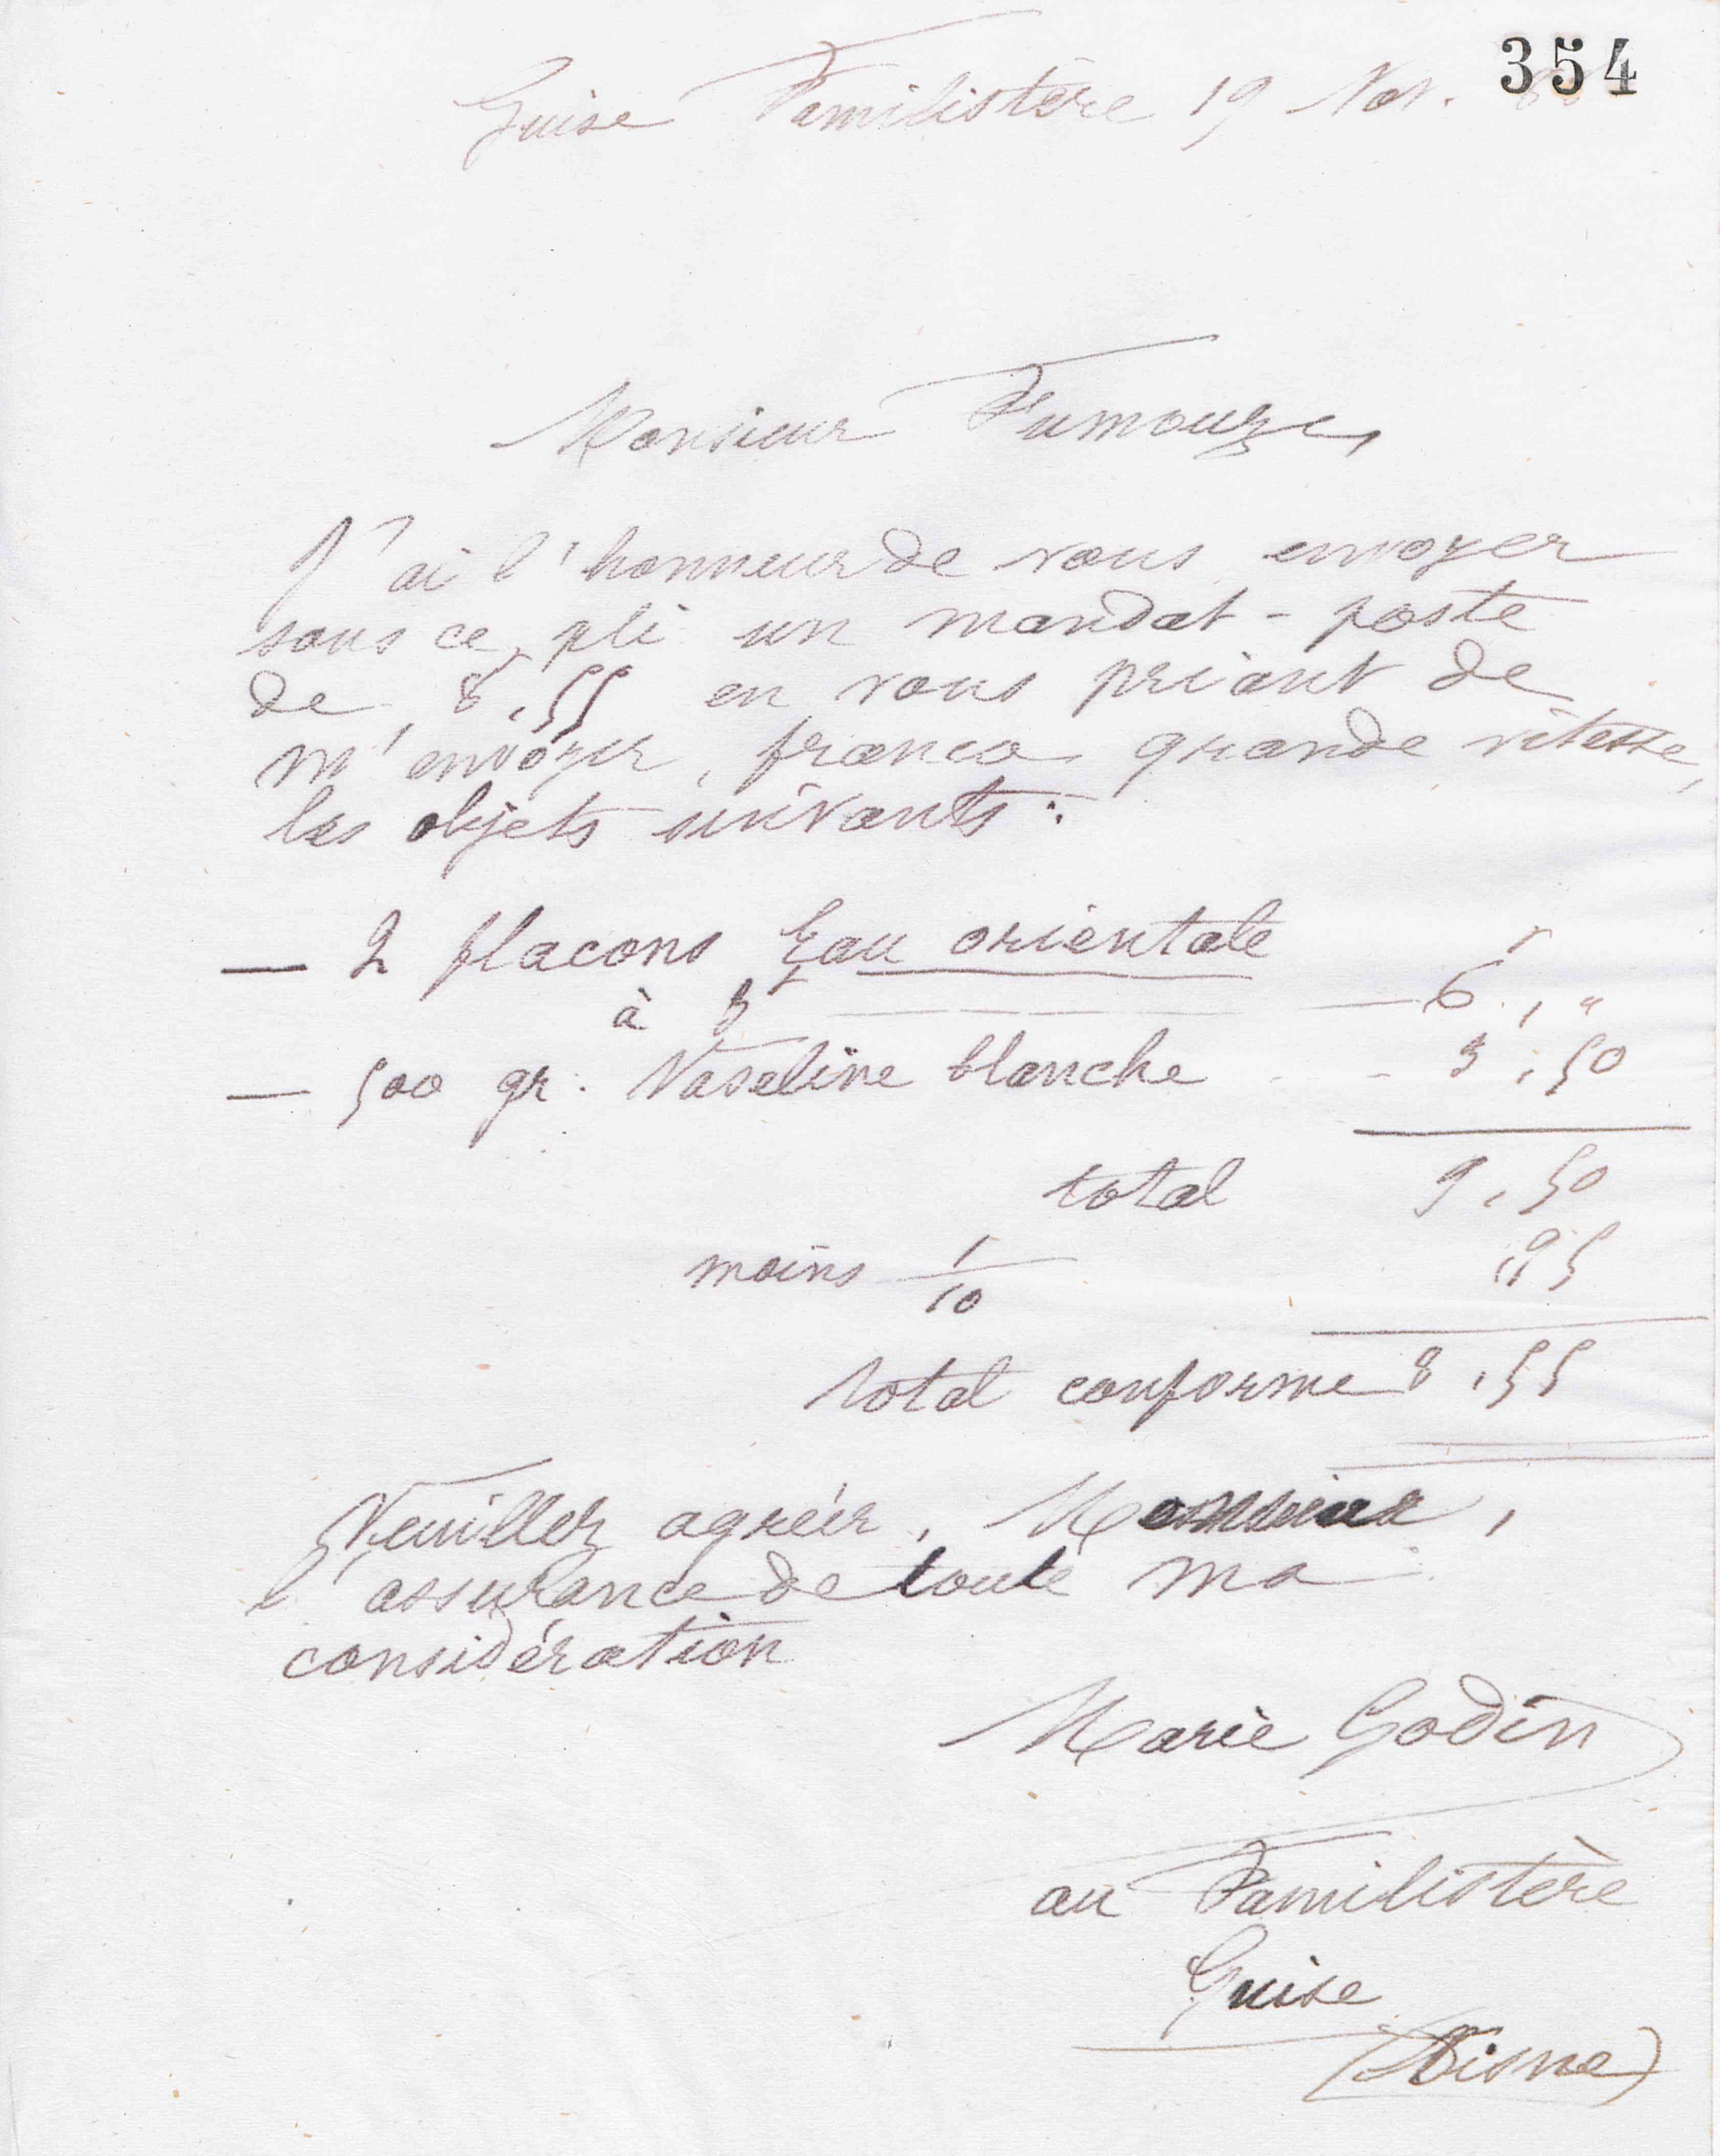 354
Guise Familistère 19 Nov.
Monsieur Fumouze,
J'ai l'honneur de vous envoyer
sous ce pli un mandat-poste
de 8,55 en vous priant de
m'envoyer, franco grande vitesse,
les objets suivants :
— 2 flacons Eau orientale
à 3f — 6f, "
— 500 gr. Vaseline blanche - - 3,50
total 9,50
moins 1/10 ,95
total conforme 8,55
Veuillez agréer, Monsieur,
l'assurance de toute ma
considération
Marie Godin
au Familistère
Guise
(Aisne)